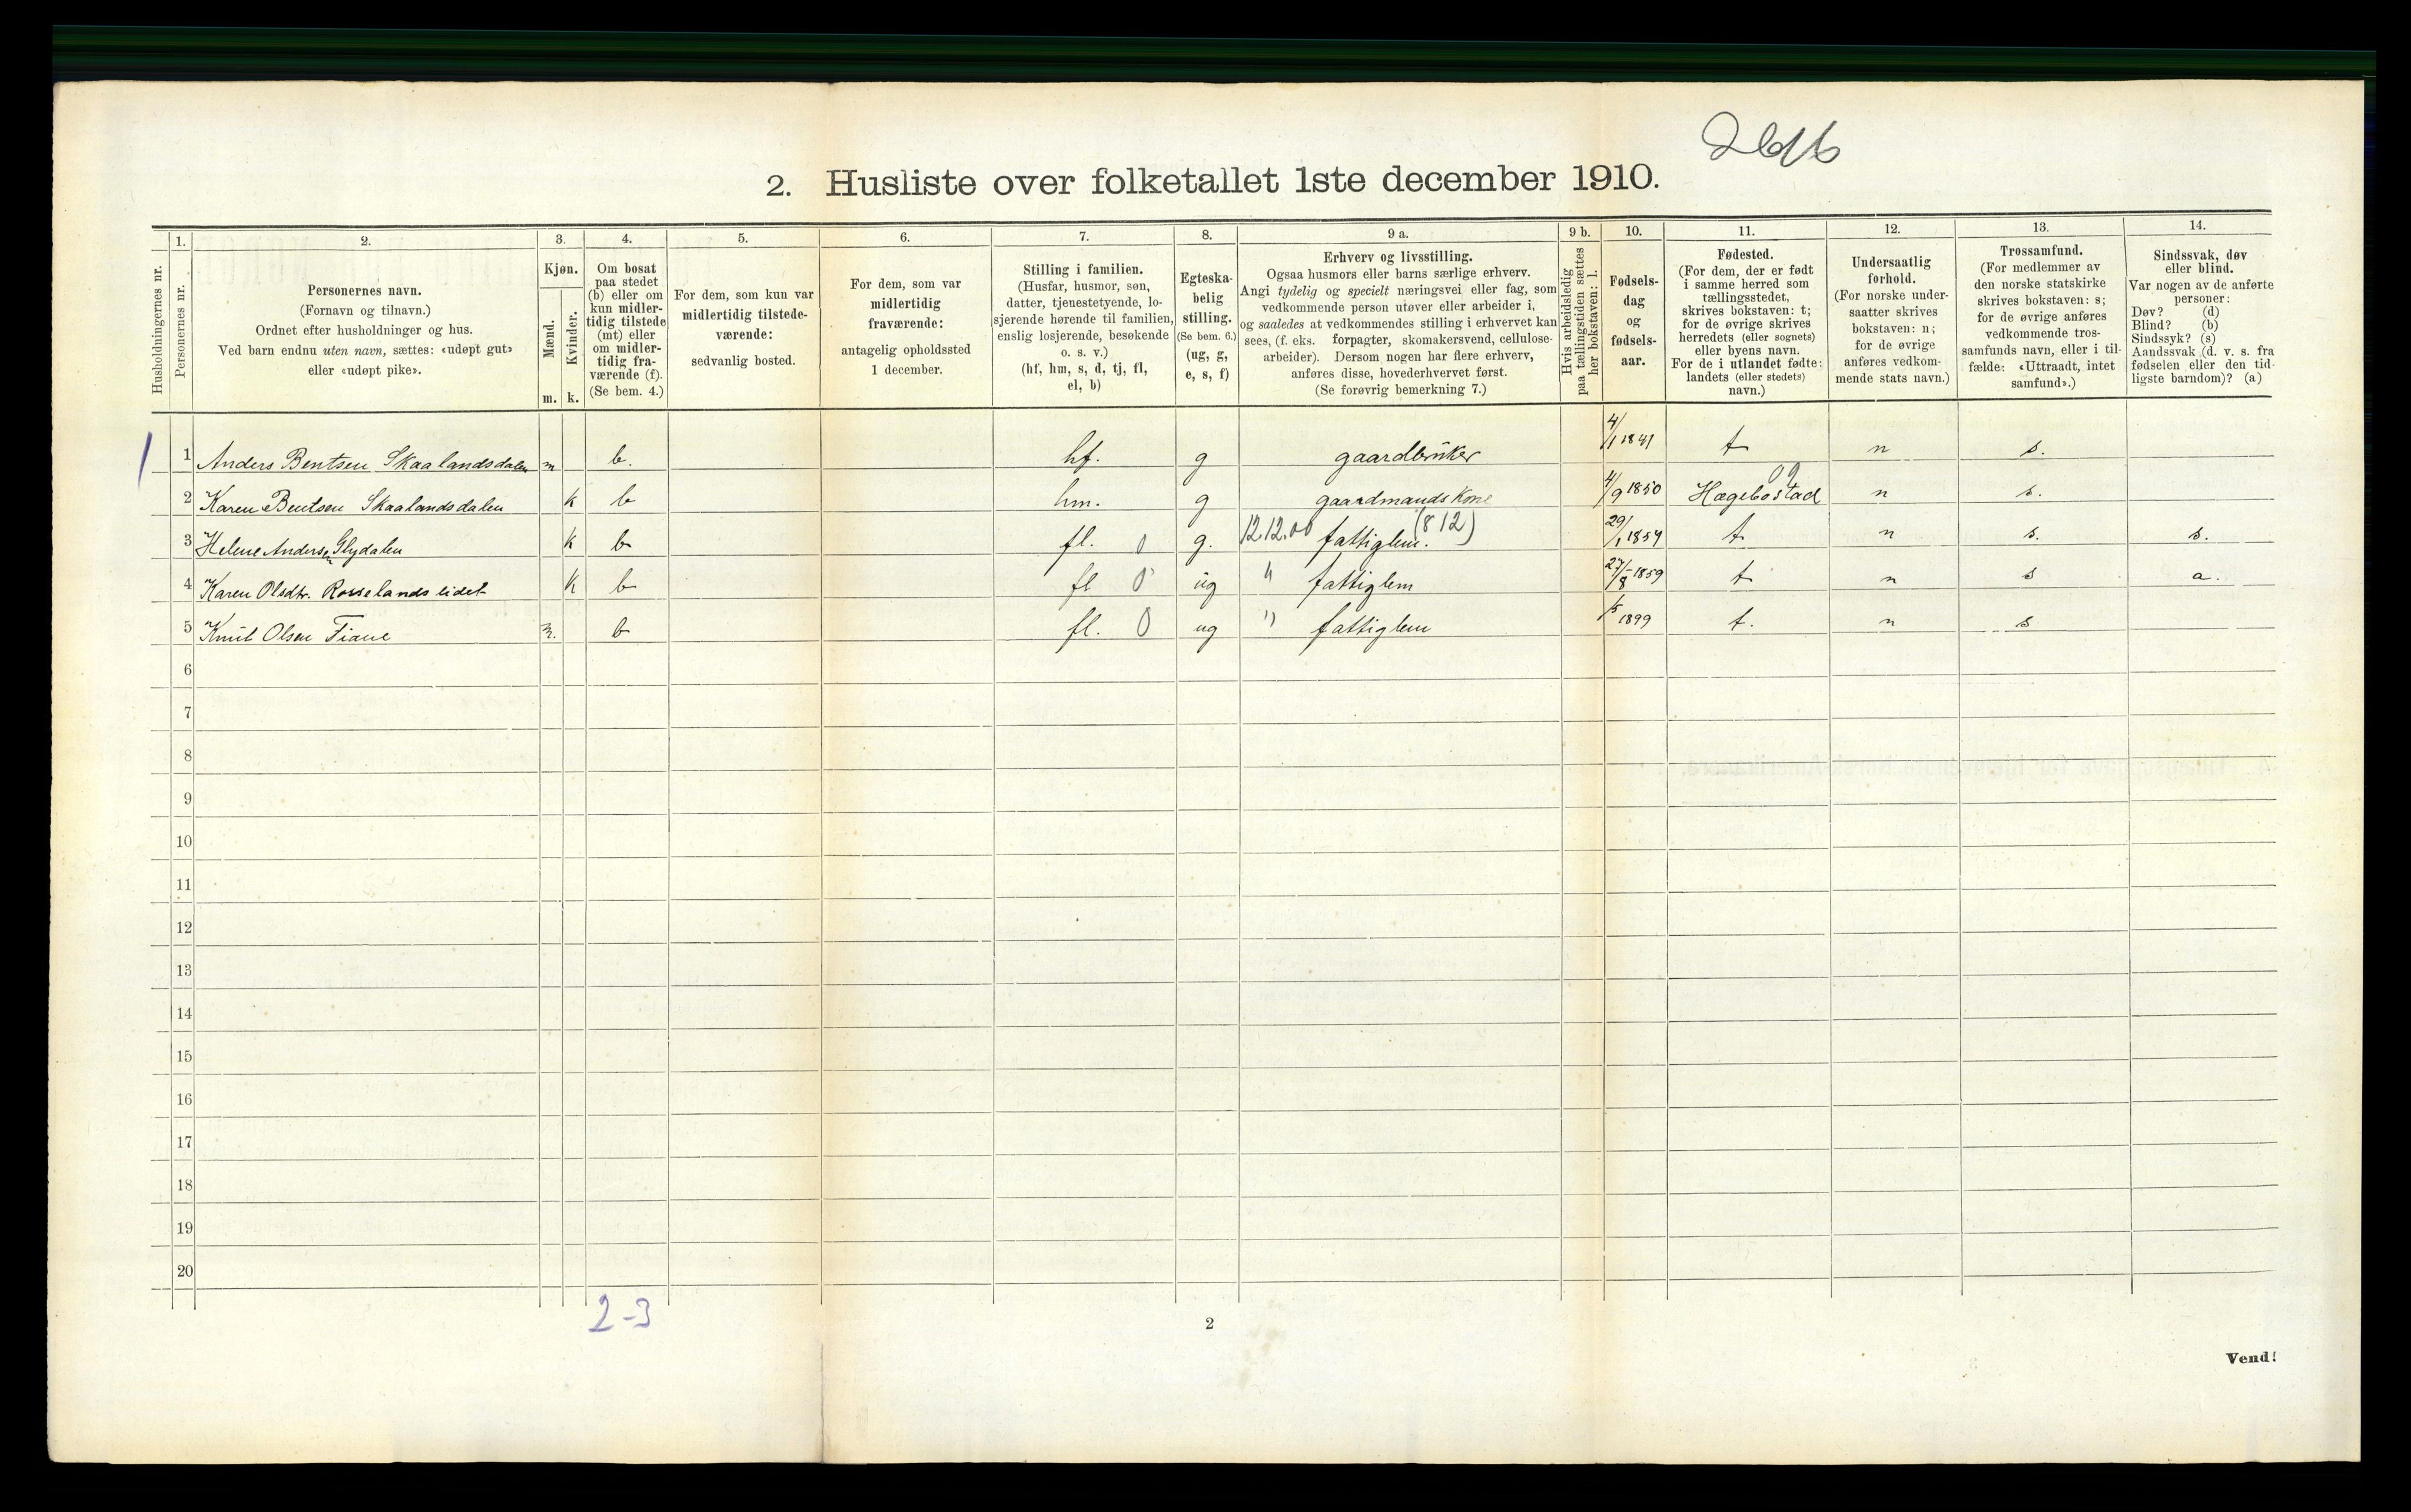 2. Husliste over folketallet 1ste december 1910.
Husholdningernes nr.
1.
Personernes nr.
2.
Personernes navn.
(Fornavn og tilnavn.)
Ordnet efter husholdninger og hus.
Ved barn endnu uten navn, sættes: «udøpt gut»
eller «udøpt pike».
3.
Kjøn.
Mænd.
Kvinder.
m. k.
4.
Om bosat
paa stedet
(b) eller om
kun midler-
tidig tilstede
(mt) eller
om midler-
tidig fra-
værende (f).
(Se bem. 4.)
5.
For dem, som kun var
midlertidig tilstede-
værende:
sedvanlig bosted.
6.
For dem, som var
midlertidig
fraværende:
antagelig opholdssted
1 december.
7.
Stilling i familien.
(Husfar, husmor, søn,
datter, tjenestetyende, lo-
sjerende hørende til familien,
enslig losjerende, besøkende
o. s. v.)
(hf, hm, s, d, tj, fl,
el, b)
8.
Egteska-
belig
stilling.
(Se bem. 6.)
(ug, g,
e, s, f)
9 a.
Erhverv og livsstilling.
Ogsaa husmors eller barns særlige erhverv.
Angi tydelig og specielt næringsvei eller fag, som
vedkommende person utøver eller arbeider i,
og saaledes at vedkommendes stilling i erhvervet kan
sees, (f. eks. forpagter, skomakersvend, cellulose-
arbeider). Dersom nogen har flere erhverv,
anføres disse, hovederhvervet først.
(Se forøvrig bemerkning 7.)
9 b.
Hvis arbeidsledig
paa tællingstiden sættes
her bokstaven: l.
10.
Fødsels-
dag
og
fødsels-
aar.
11.
Fødested.
(For dem, der er født
i samme herred som
tællingsstedet,
skrives bokstaven: t;
for de øvrige skrives
herredets (eller sognets)
eller byens navn.
For de i utlandet fødte:
landets (eller stedets)
navn.)
12.
Undersaatlig
forhold.
(For norske under-
saatter skrives
bokstaven: n;
for de øvrige
anføres vedkom-
mende stats navn.)
13.
Trossamfund.
(For medlemmer av
den norske statskirke
skrives bokstaven: s;
for de øvrige anføres
vedkommende tros-
samfunds navn, eller i til-
fælde: «Uttraadt, intet
samfund».)
14.
Sindssvak, døv
eller blind.
Var nogen av de anførte
personer:
Døv? (d)
Blind? (b)
Sindssyk? (s)
Aandssvak (d. v. s. fra
fødselen eller den tid-
ligste barndom)? (a)
1 Anders Bentsen Skaalandsdalen m b. hf. g gaardbrüker 4/1 1841 t n s.
2 Karen Bentsen Skaalandsdalen k b hm. g gaardmands Kone 4/9 1850 Hægebostad 09 n s.
3 Helene Andersen Glydalen k b fl. 0 g. 1212.00 fattiglem. (812) 29/1 1854 t n s. s.
4 Karen Olsdtr. Rosselandslidet k b fl 0 üg " fattiglem 27/8-1859 t n s a.
5 Knüt Olsen Fiane m. b fl. 0 ug " fattiglem 1899 t. n s
6
7
8
9
10
11
12
13
14
15
16
17
18
19
20
2-3
2
Vend!